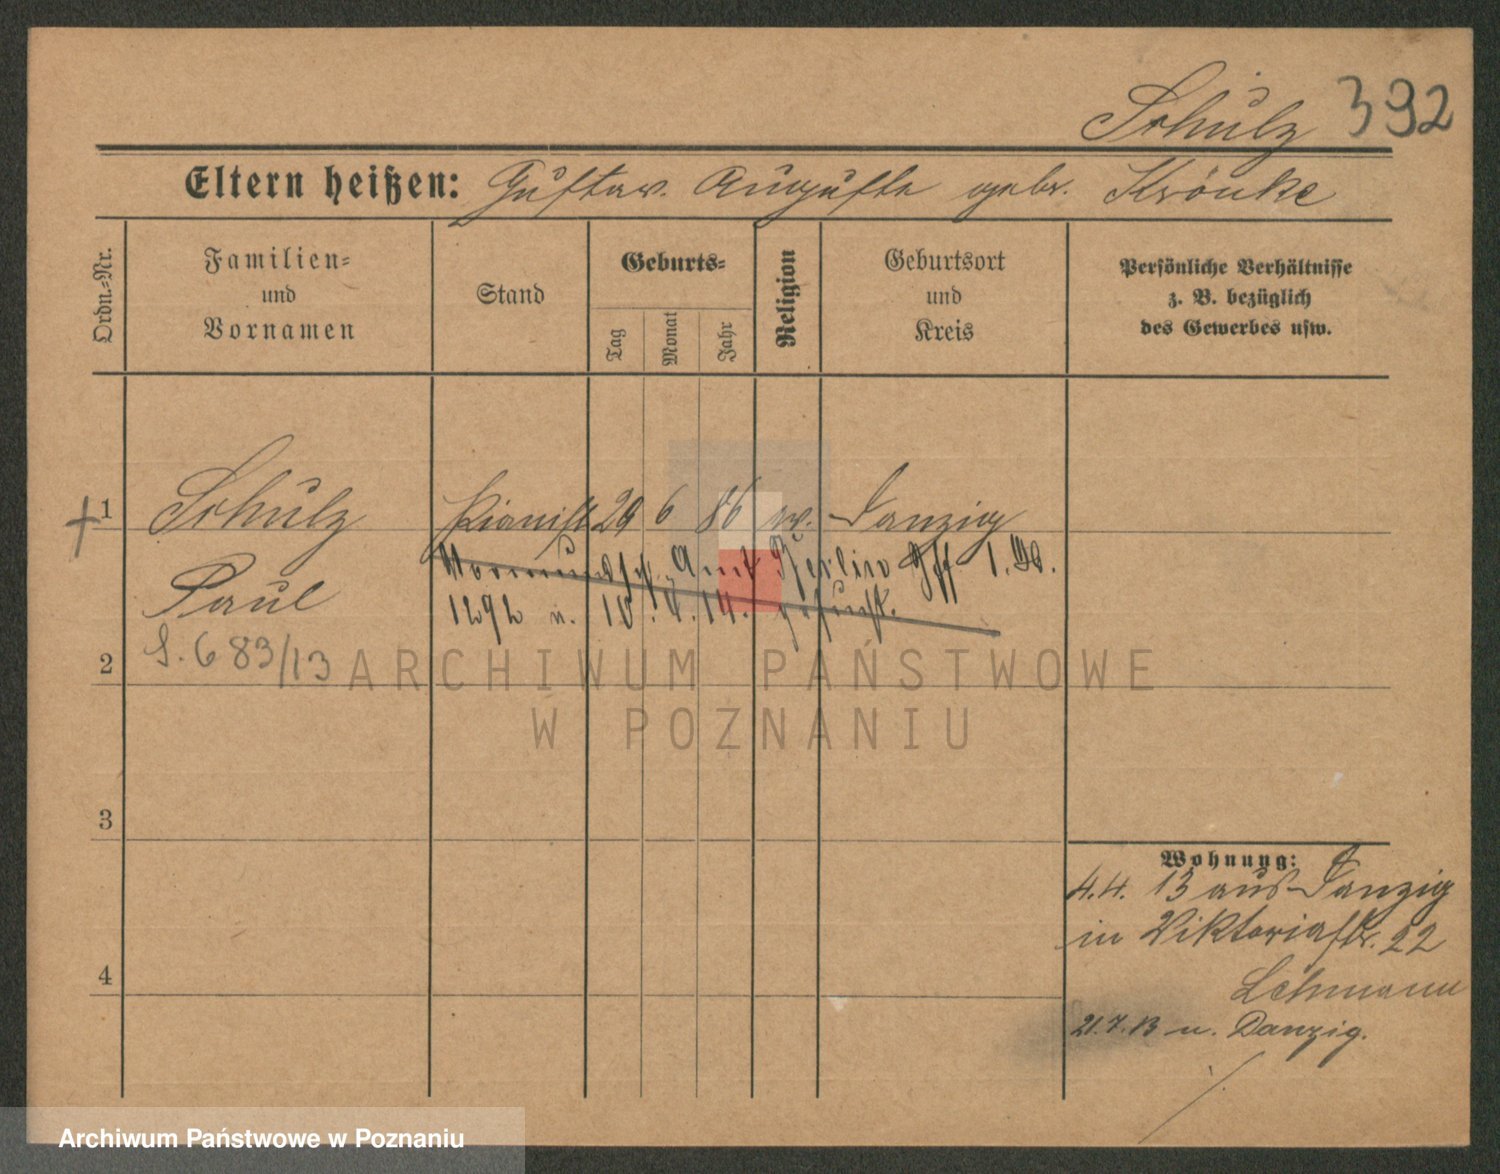 Schulz 392
Eltern heißen: Gustav. Auguste geb. Krönke
Ordn.-Nr.
Familien-
und
Vornamen
Stand
Geburts-
Tag
Monat
Jahr
Religion
Geburtsort
und
Kreis
Persönliche Verhältnisse
z. B. bezüglich
des Gewerbes usw.
1 Schulz Pianist 29 6 86 ev. Danzig
Paul
Vormundsch. Amt Berlin Gff 1. Ib.
1292 u. 10.4.14. gesucht.
2 S. 683/13
3
4
Wohnung:
4.4. 13 aus Danzig
in Viktoriastr. 22
Lehmann
21.7.13 n. Danzig.
ARCHIWUM PAŃSTWOWE
W POZNANIU
Archiwum Państwowe w Poznaniu